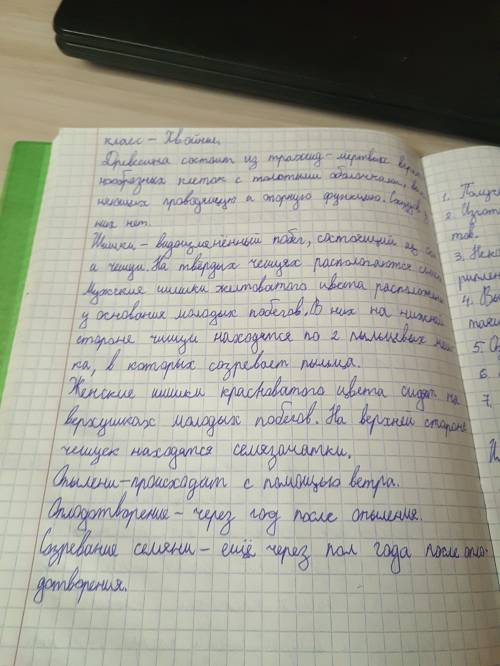 класс - Хвойные.
Древесина состоит из трахеид - мертвых верет
нообразных клеток с толстыми оболочками, вы
няющих проводящую и опорную функцию. Сосудов у
них нет.
Шишки - видоизменённый побег, состоящий из
и чешуи. На твёрдых чешуях располагаются
Мужские шишки желтоватого цвета расположены
у основания молодых побегов. В них на нижней
стороне чешуи находятся по 2 пыльцевых меш
ка, в которых созревает пыльца.
Женские шишки красноватого цвета сидят на
верхушках молодых побегов. На верхней стороне
чешуек находятся семязачатки.
Опылени-происходит с помощью ветра.
Оплодотворение - через год после опыления.
Созревание семени - ещё через пол года после опло-
дотворения.
1. Получ
2. Изгот
тов.
4. Вы
5.
6.
7.